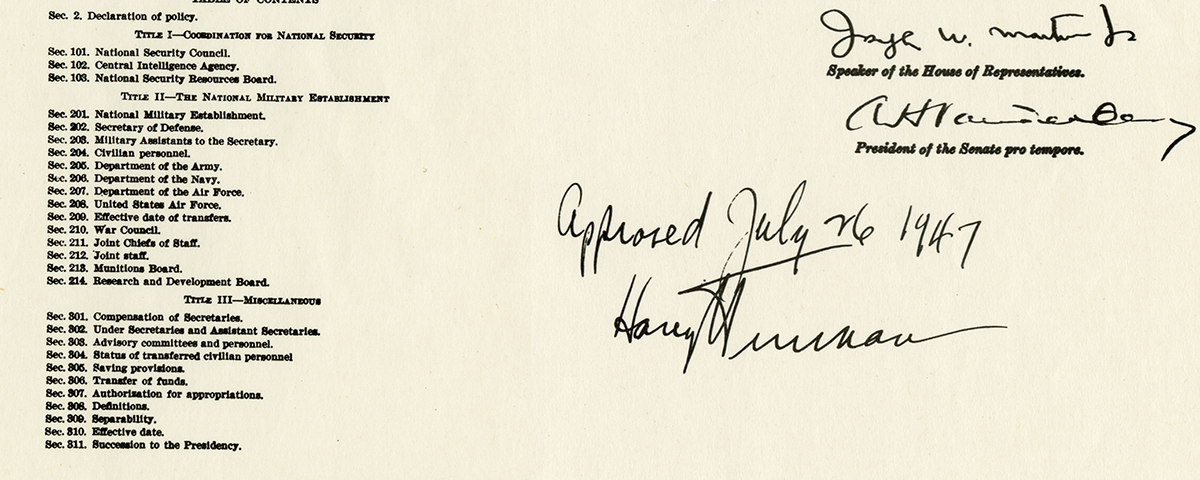 TABLE OF CONTENTS
Sec. 2. Declaration of policy.
TITLE I—COORDINATION FOR NATIONAL SECURITY
Sec. 101. National Security Council.
Sec. 102. Central Intelligence Agency.
Sec. 103. National Security Resources Board.
TITLE II—THE NATIONAL MILITARY ESTABLISHMENT
Sec. 201. National Military Establishment.
Sec. 202. Secretary of Defense.
Sec. 203. Military Assistants to the Secretary.
Sec. 204. Civilian personnel.
Sec. 205. Department of the Army.
Sec. 206. Department of the Navy.
Sec. 207. Department of the Air Force.
Sec. 208. United States Air Force.
Sec. 209. Effective date of transfers.
Sec. 210. War Council.
Sec. 211. Joint Chiefs of Staff.
Sec. 212. Joint staff.
Sec. 213. Munitions Board.
Sec. 214. Research and Development Board.
TITLE III—MISCELLANEOUS
Sec. 301. Compensation of Secretaries.
Sec. 302. Under Secretaries and Assistant Secretaries.
Sec. 303. Advisory committees and personnel.
Sec. 304. Status of transferred civilian personnel
Sec. 305. Saving provisions.
Sec. 306. Transfer of funds.
Sec. 307. Authorization for appropriations.
Sec. 308. Definitions.
Sec. 309. Separability.
Sec. 310. Effective date.
Sec. 311. Succession to the Presidency.
Joseph W. Martin Jr
Speaker of the House of Representatives.
A H Vandenberg
President of the Senate pro tempore.
Approved July 26 1947
Harry Truman